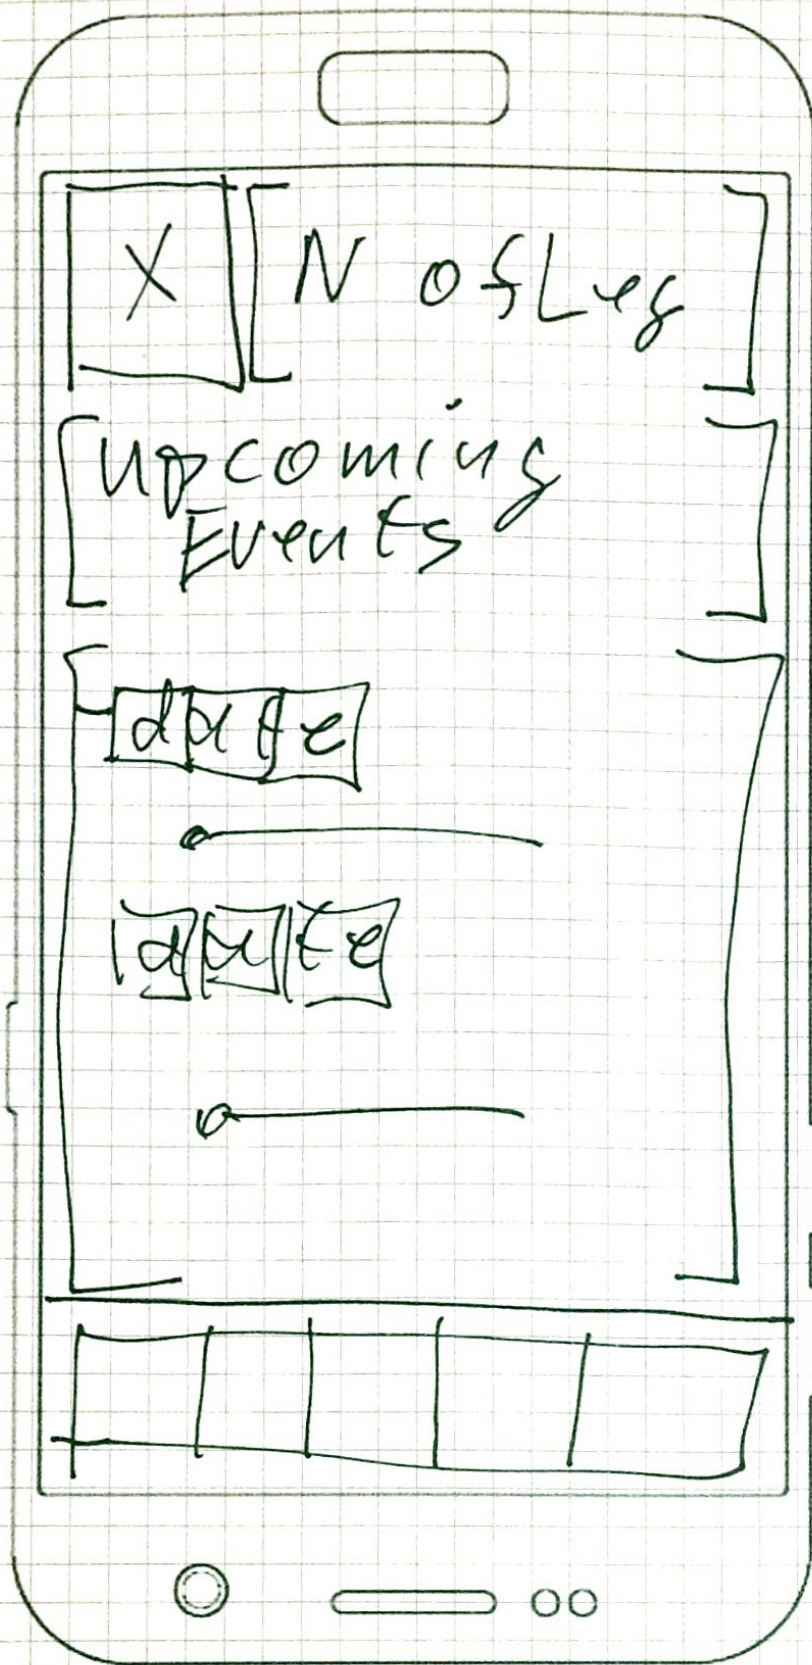 X
N of Leg
Upcoming
Events
date
date